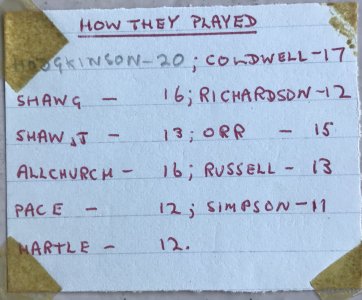 HOW THEY PLAYED
HODGKINSON-20; COLDWELL-17
SHAW G - 16; RICHARDSON-12
SHAW, J - 13; ORR - 15
ALLCHURCH - 16; RUSSELL - 13
PACE - 12; SIMPSON-11
HARTLE - 12.